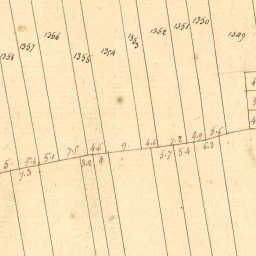 1358
1357
1356
1355
1354
1353
1352
1351
1350
1349
5
5.4
5.1
7.5
4.6
9.
4.6
7.2
4.9
5.6
7.3
5.0
8
5.7
5.4
6.3
4
3
4